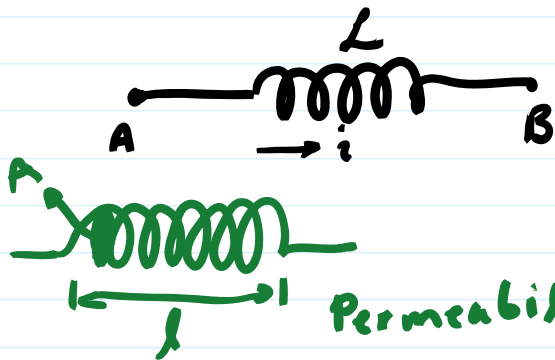 L
A
i
B
A
l
Permeabi